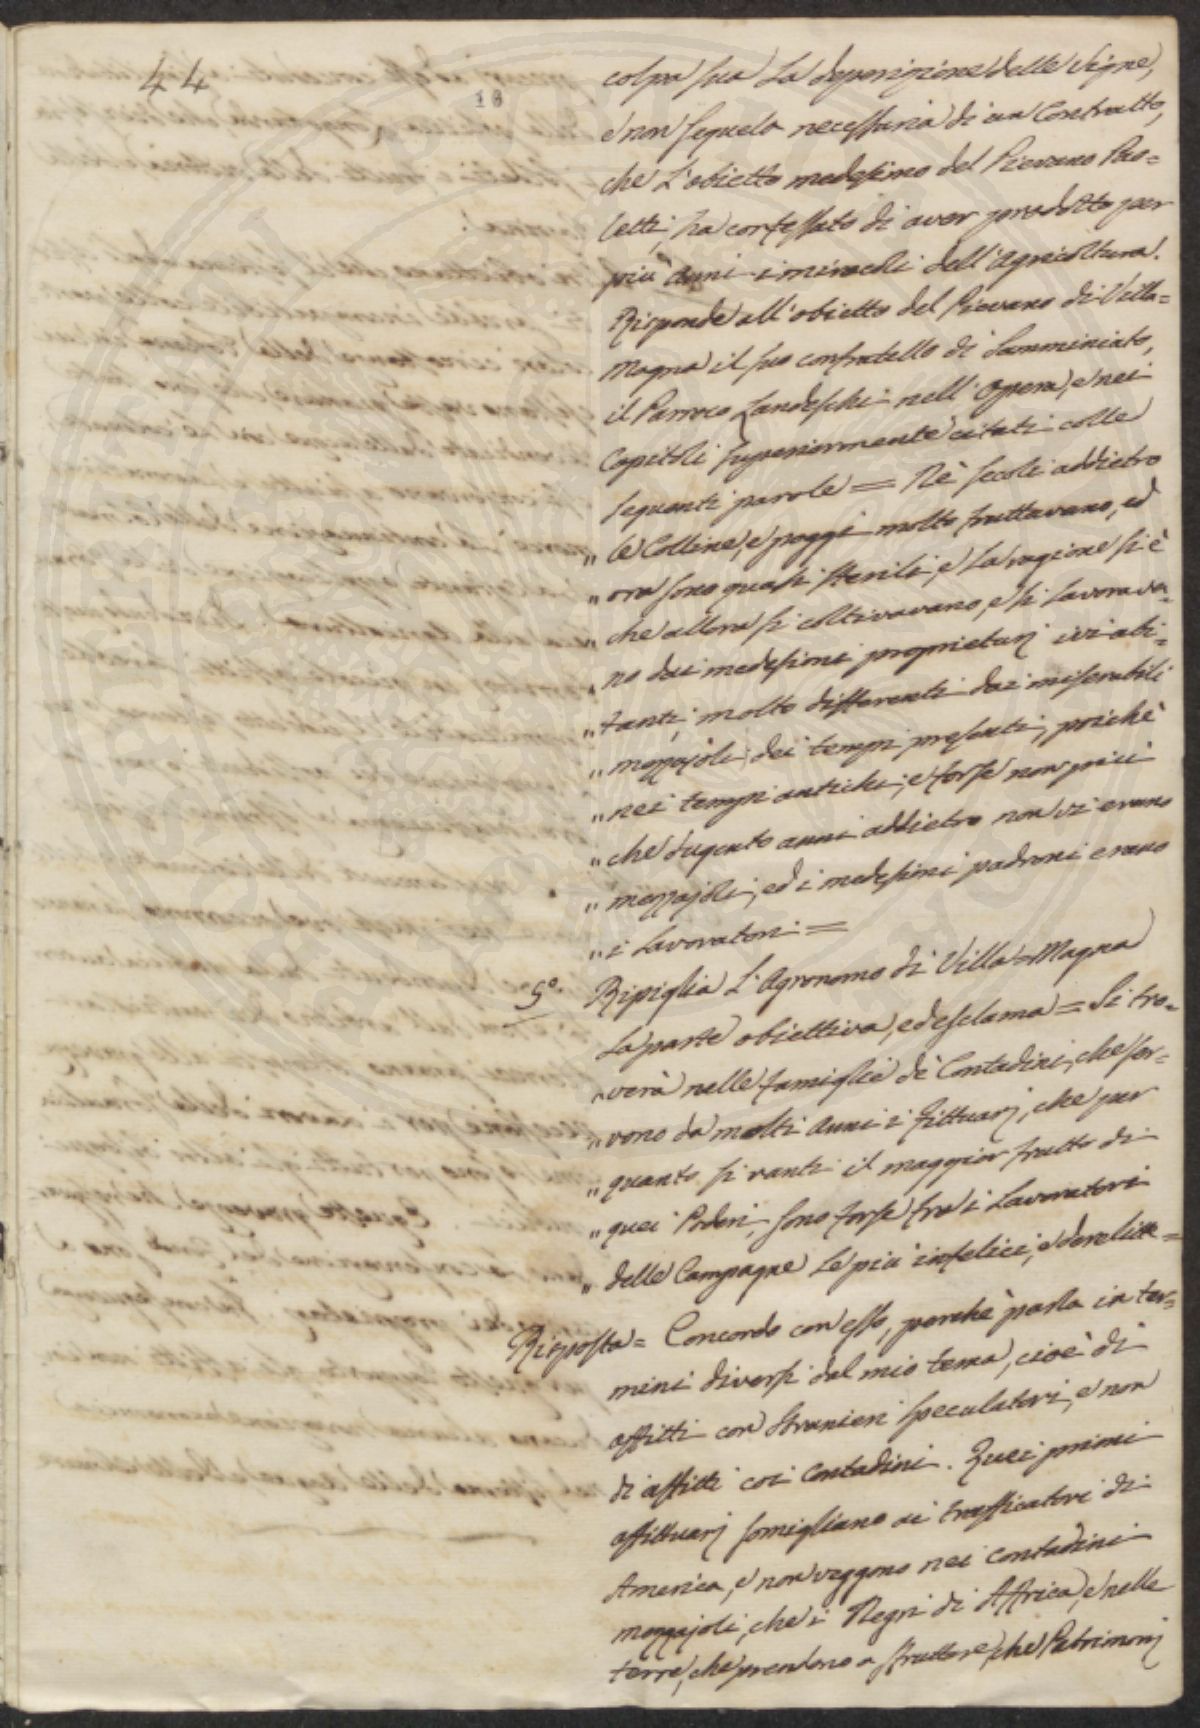 44
18
colpa sua la deperizione delle Vigne,
e non sequela necessaria di un Contratto,
che l'obietto medesimo del Pievano Pao=
letti, ha confessato di aver prodotto per
più anni i miracoli dell'Agricoltura.
Risponde all'obietto del Pievano di Villa=
Magna il suo confratello di Samminiato,
il Parroco Landeschi nell'Opera, e nei
Capitoli superiormente citati colle
seguenti parole = Ne' secoli addietro
" le Colline, e poggi molto fruttavano, ed
" ora sono quasi sterili, e la ragione si è
" che allora si coltivavano, e si lavorava=
" no dai medesimi proprietarj ivi abi=
" tanti, molto differenti dai miserabili
" mezzajoli dei tempi presenti, poichè
" nei tempi antichi, e forse non più
" che dugento anni addietro non vi erano
" mezzajoli, ed i medesimi padroni erano
" i lavoratori =
5.° Ripiglia l'Agronomo di Villa=Magna
la parte obiettiva, ed esclama = Si tro=
" verà nelle famiglie de' Contadini, che ser=
" vono da molti Anni i Fittuarj, che per
" quanto si vanti il maggior frutto di
" quei Poderi, sono forse fra i Lavoratori
" delle Campagne le più infelici, e derelitte =
Risposta = Concordo con esso, perchè parla in ter=
mini diversi dal mio tema, cioè di
affitti con stranieri speculatori, e non
di affitti coi Contadini. Quei primi
affittuarj somigliano ai trafficatori di
America, e non veggono nei contadini
mezzajoli, che i Negri di Affrica, e nelle
terre, che prendono a sfruttare, che Patrimonj